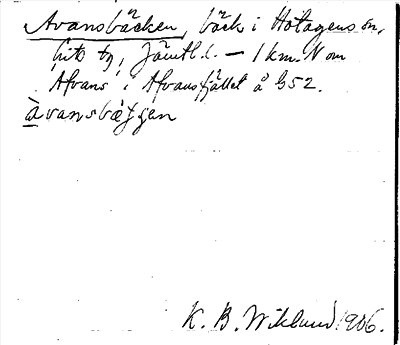 Avansbäcken, bäck i Hotagens sn,
, Jämtl. l. – 1 km. N om
Afvans i Afvansfjället å G52.
àvansbätjen
K. B. Wiklund 1906.